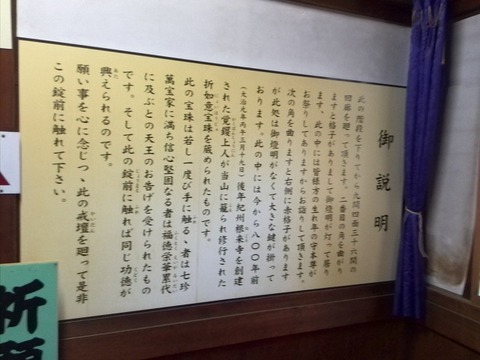 御説明
此の階段を下りてから九間四面三十六間の
回廊を廻って頂きます。二番目の角を曲がり
ますと格子がありまして御燈明が灯って居り
ます。此の中には皆様方の生れ年の守本尊が
お祭りしてありますからお詣りして頂きます。
次の角を曲りますと右側に赤格子があります
が此処は御燈明がなくて大きな鍵が掛って
おります。此の中には今から八〇〇年前
(大治元年の十三月十九日)後年紀州根来寺を創建
された覚鑁上人が当山に籠られ修行された
折如意宝珠を蔵められたものです。
此の宝珠は若し一度び手に触るゝ者は七珍
萬宝家に満ち信心堅固なる者は福徳栄華累代
に及ぶとの天王のお告げを受けられたもの
です。そして此の錠前に触れば同じ功徳が
興えられるのです。
願い事を心に念じつゝ此の戒壇を廻って是非
この錠前に触れて下さい。
祈願